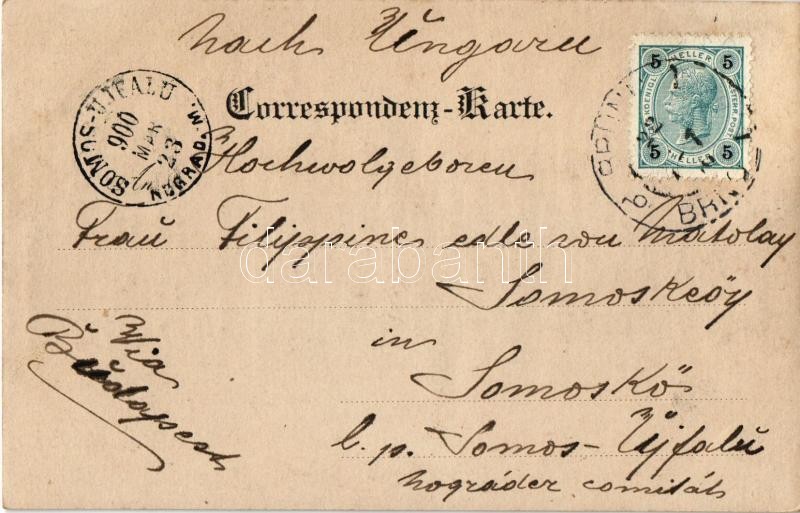 nach Ungarn
Correspondenz-Karte.
SOMOS-UJFALU
900
MAR
23
NÓGRÁD M.
5 HELLER 5
KAIS. KOENIGL. OESTERR. POST
5 HELLER 5
BRÜNN
BRNO
Hochwolgeboren
Frau Filippine edle von Matolay
Somoskeöy
in
Somoskö
l. p. Somos-Újfalú
nográder comitát
Via
Budapest
darabanth